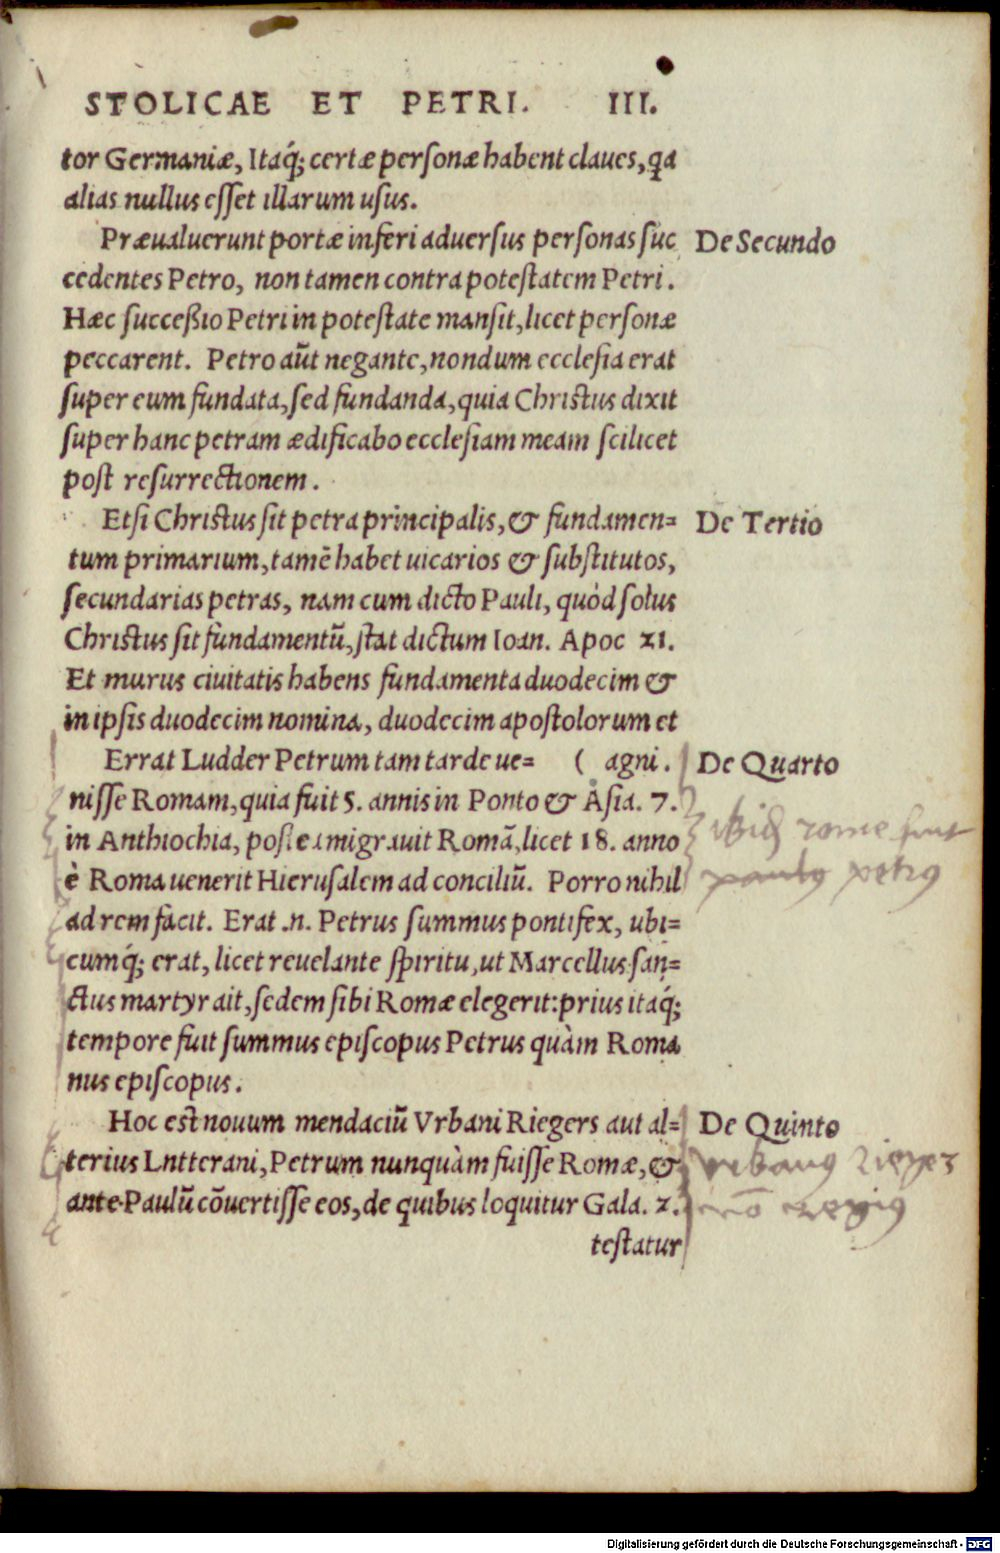 STOLICAE ET PETRI. III.
tor Germaniæ, Itaq́; certæ personæ habent claues, qa
alias nullus esset illarum usus.
Præualuerunt portæ inferi aduersus personas suc
De Secundo
cedentes Petro, non tamen contra potestatem Petri.
Hæc succeßio Petri in potestate mansit, licet personæ
peccarent. Petro aũt negante, nondum ecclesia erat
super eum fundata, sed fundanda, quia Christus dixit
super hanc petram ædificabo ecclesiam meam scilicet
post resurrectionem.
Etsi Christus sit petra principalis, & fundamen=
De Tertio
tum primarium, tamẽ habet uicarios & substitutos,
secundarias petras, nam cum dicto Pauli, quòd solus
Christus sit fundamentũ, stat dictum Ioan. Apoc 21.
Et murus ciuitatis habens fundamenta duodecim &
in ipsis duodecim nomina, duodecim apostolorum et
Errat Ludder Petrum tam tarde ue= ( agni.
De Quarto
nisse Romam, quia fuit 5. annis in Ponto & Asia. 7.
in Anthiochia, postea migrauit Romã, licet 18. anno
rome fuit
è Roma uenerit Hierusalem ad conciliũ. Porro nihil
paulus petrus
ad rem facit. Erat .n. Petrus summus pontifex, ubi=
cumq́; erat, licet reuelante spiritu, ut Marcellus san=
ctus martyr ait, sedem sibi Romæ elegerit: prius itaq́;
tempore fuit summus episcopus Petrus quàm Roma
nus episcopus.
Hoc est nouum mendaciũ Vrbani Riegers aut al=
De Quinto
terius Lntterani, Petrum nunquàm fuisse Romæ, &
vrbanus Rieger
ante Paulũ cõuertisse eos, de quibus loquitur Gala. 2.
regius
testatur
Digitalisierung gefördert durch die Deutsche Forschungsgemeinschaft - DFG